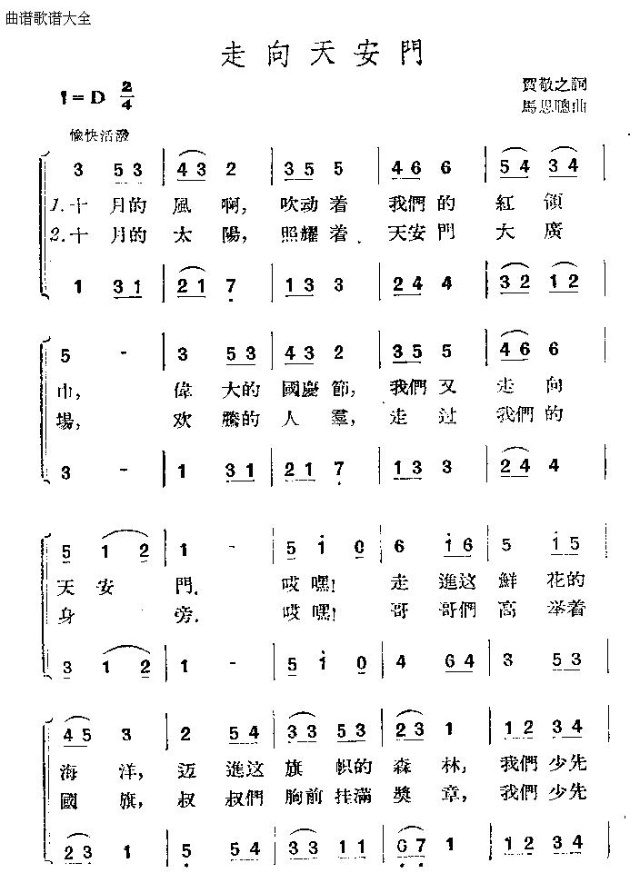 曲谱歌谱大全
走向天安門
1=D 2/4
賀敬之詞
馬思聰曲
愉快活潑
3 5 3 4 3 2 3 5 5 5 4 6 6 6 5 4 3 4
1.十月的風啊，吹动着我們的紅領
2.十月的太陽，照耀着天安門大廣
1 3 1 2 1 7 1 3 3 3 2 4 4 4 3 2 1 2
5 - 3 5 3 4 3 2 3 5 5 5 4 6 6
巾，偉大的國慶節，我們又走向
場，欢騰的人羣，走过我們的
3 - 1 3 1 2 1 7 1 3 3 3 2 4 4
5 1 2 1 - 5 1 0 6 1 6 5 1 5
天安門．哎嘿！走進这鮮花的
身旁．哎嘿！哥哥們高举着
3 1 2 1 - 5 1 0 4 6 4 3 5 3
4 5 3 2 5 4 3 3 5 3 2 3 1 1 2 3 4
海洋，迈進这旗帜的森林，我們少先
國旗，叔叔們胸前挂滿獎章，我們少先
2 3 1 5 5 4 3 3 1 1 6 7 1 1 2 3 4